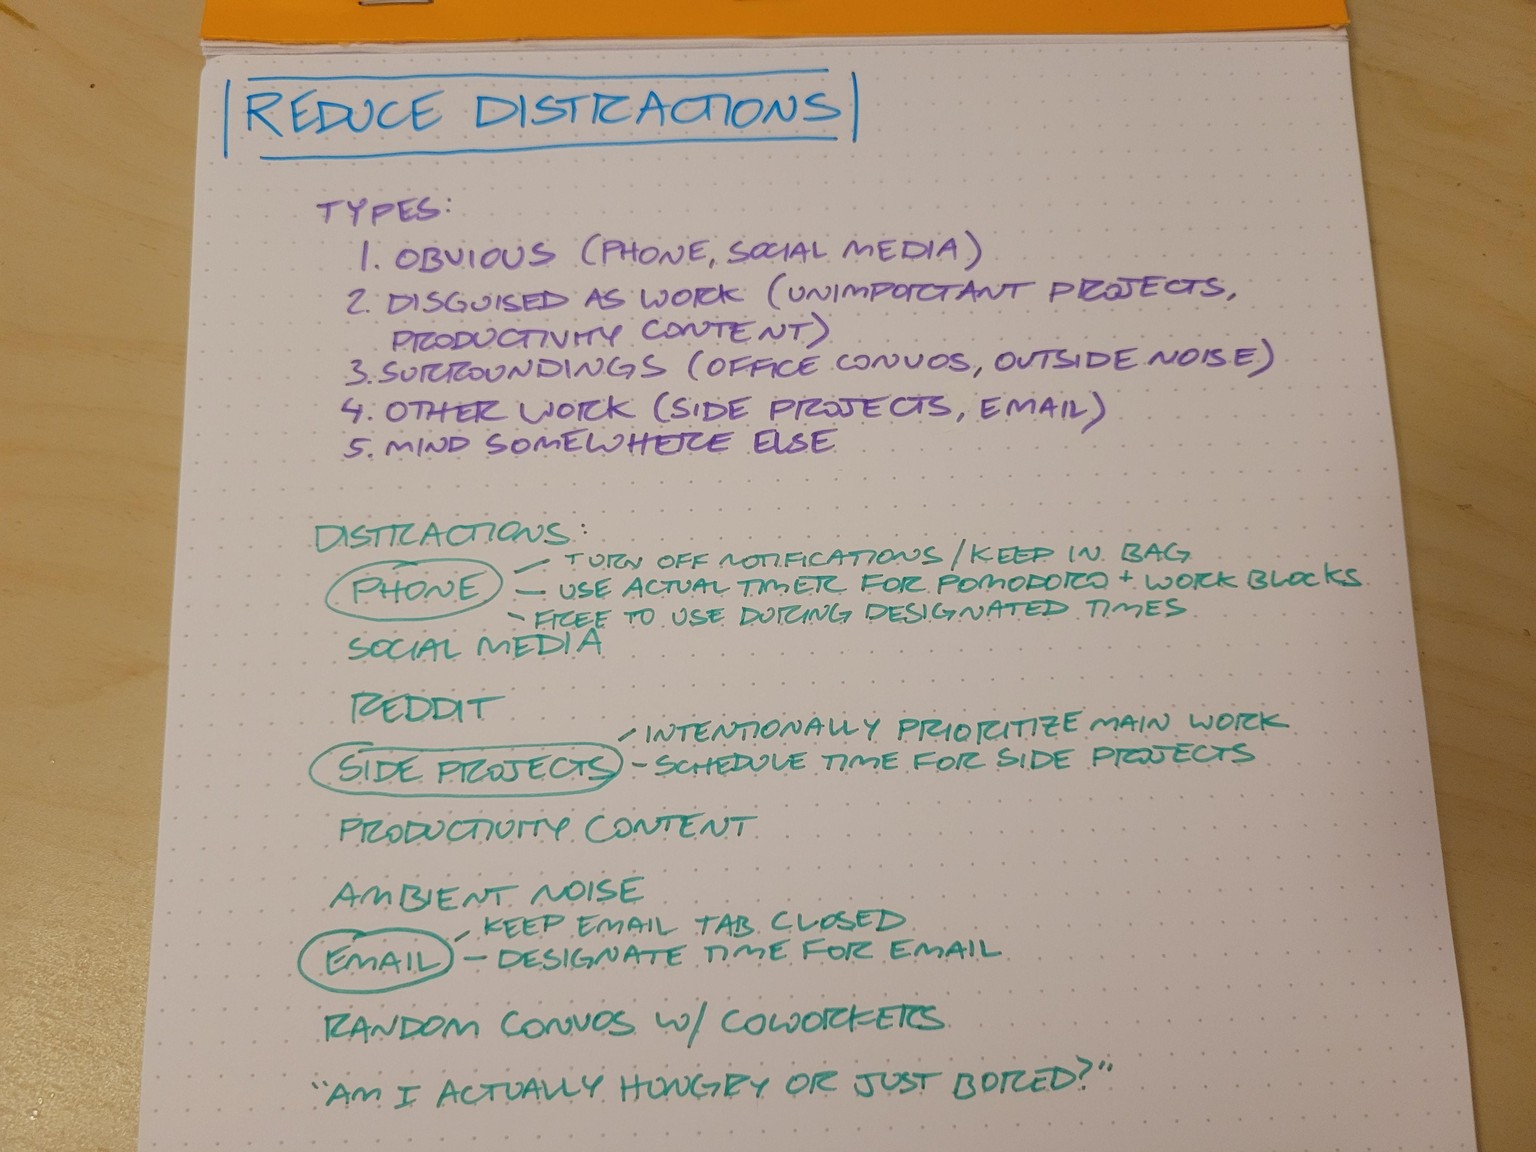 REDUCE DISTRACTIONS
TYPES:
1. OBVIOUS (PHONE, SOCIAL MEDIA)
2. DISGUISED AS WORK (UNIMPORTANT PROJECTS,
PRODUCTIVITY CONTENT)
3. SURROUNDINGS (OFFICE CONVOS, OUTSIDE NOISE)
4. OTHER WORK (SIDE PROJECTS, EMAIL)
5. MIND SOMEWHERE ELSE
DISTRACTIONS:
- TURN OFF NOTIFICATIONS / KEEP IN BAG
PHONE - USE ACTUAL TIMER FOR POMODORO + WORK BLOCKS
- FREE TO USE DURING DESIGNATED TIMES
SOCIAL MEDIA
REDDIT
- INTENTIONALLY PRIORITIZE MAIN WORK
SIDE PROJECTS - SCHEDULE TIME FOR SIDE PROJECTS
PRODUCTIVITY CONTENT
AMBIENT NOISE
- KEEP EMAIL TAB CLOSED
EMAIL - DESIGNATE TIME FOR EMAIL
RANDOM CONVOS W/ COWORKERS
"AM I ACTUALLY HUNGRY OR JUST BORED?"